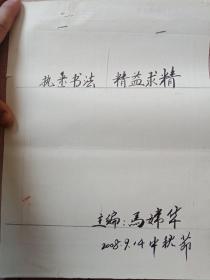 执着书法 精益求精
主编:马婵华
2008.9.14中秋节